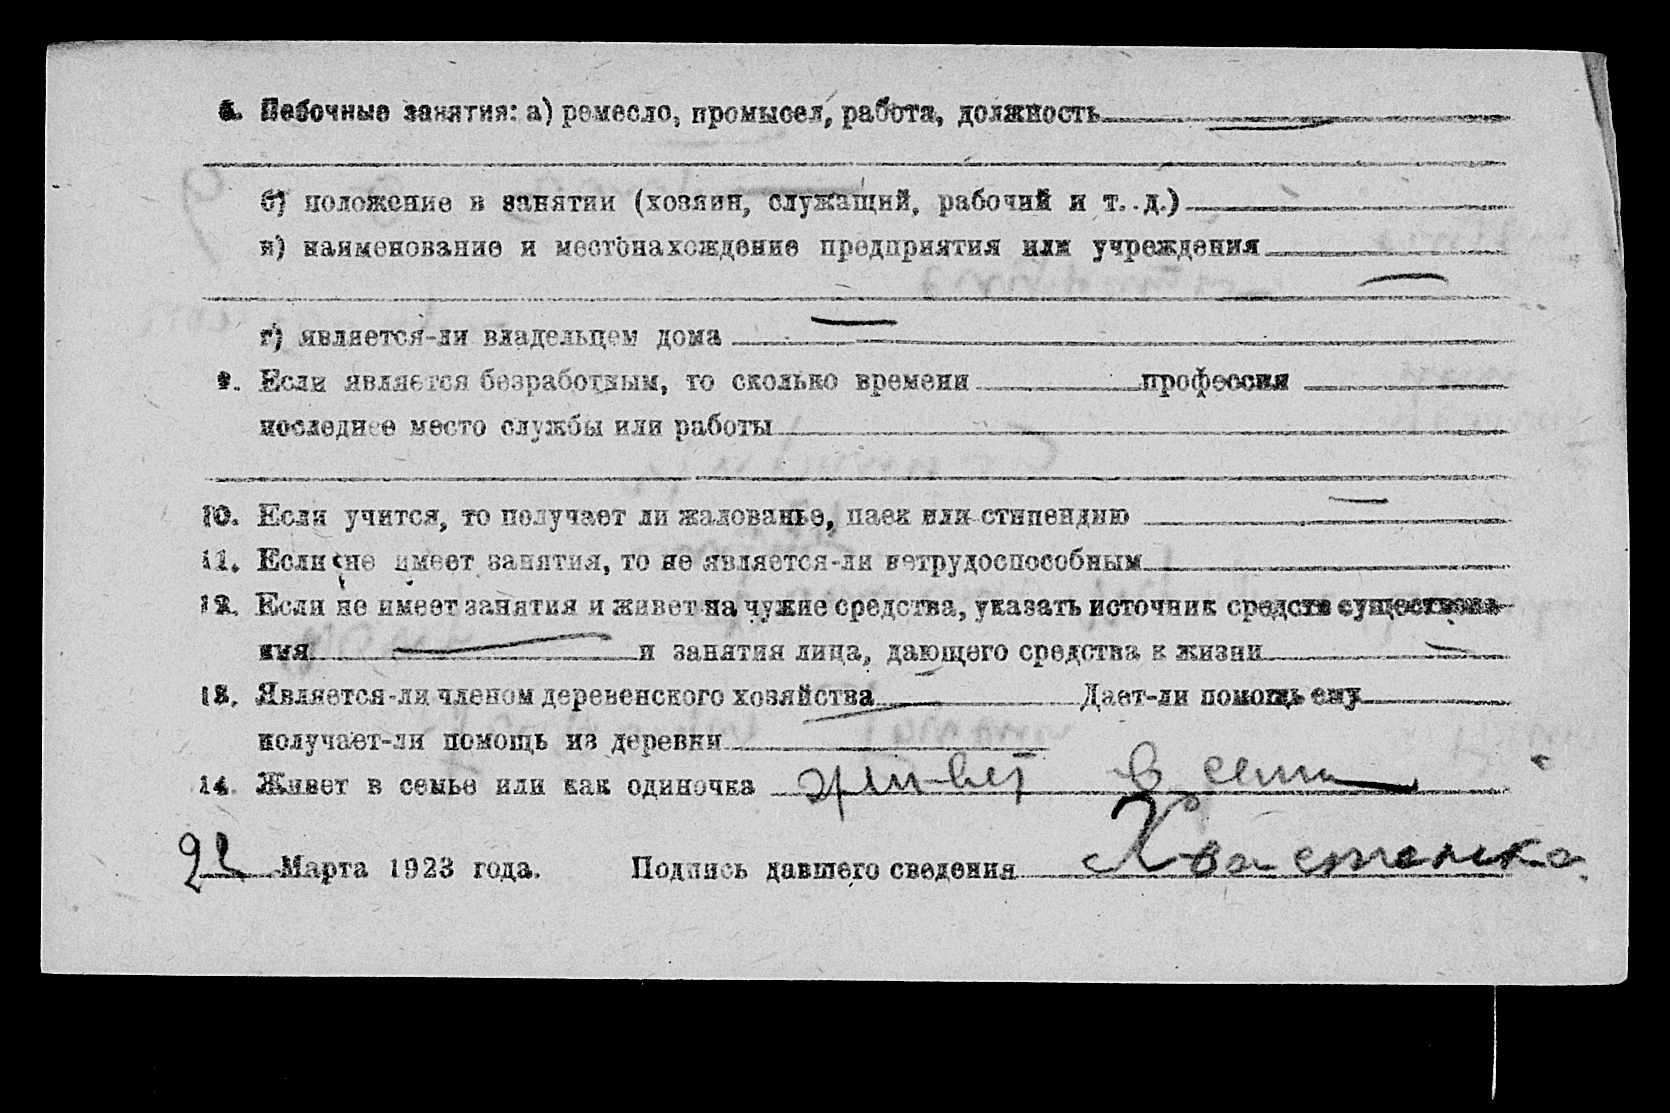 8. Побочные занятия: а) ремесло, промысел, работа, должность
б) положение в занятии (хозяин, служащий, рабочий и т. д.)
в) наименование и местонахождение предприятия или учреждения
г) является-ли владельцем дома
9. Если является безработным, то сколько времени профессия
последнее место службы или работы
10. Если учится, то получает ли жалованье, паек или стипендию
11. Если не имеет занятия, то не является-ли нетрудоспособным
12. Если не имеет занятия и живет на чужие средства, указать источник средств существова-
ния и занятия лица, дающего средства к жизни
13. Является-ли членом деревенского хозяйства Дает-ли помощь ему
получает-ли помощь из деревни
14. Живет в семье или как одиночка живет в семи
Марта 1923 года. Подпись давшего сведения